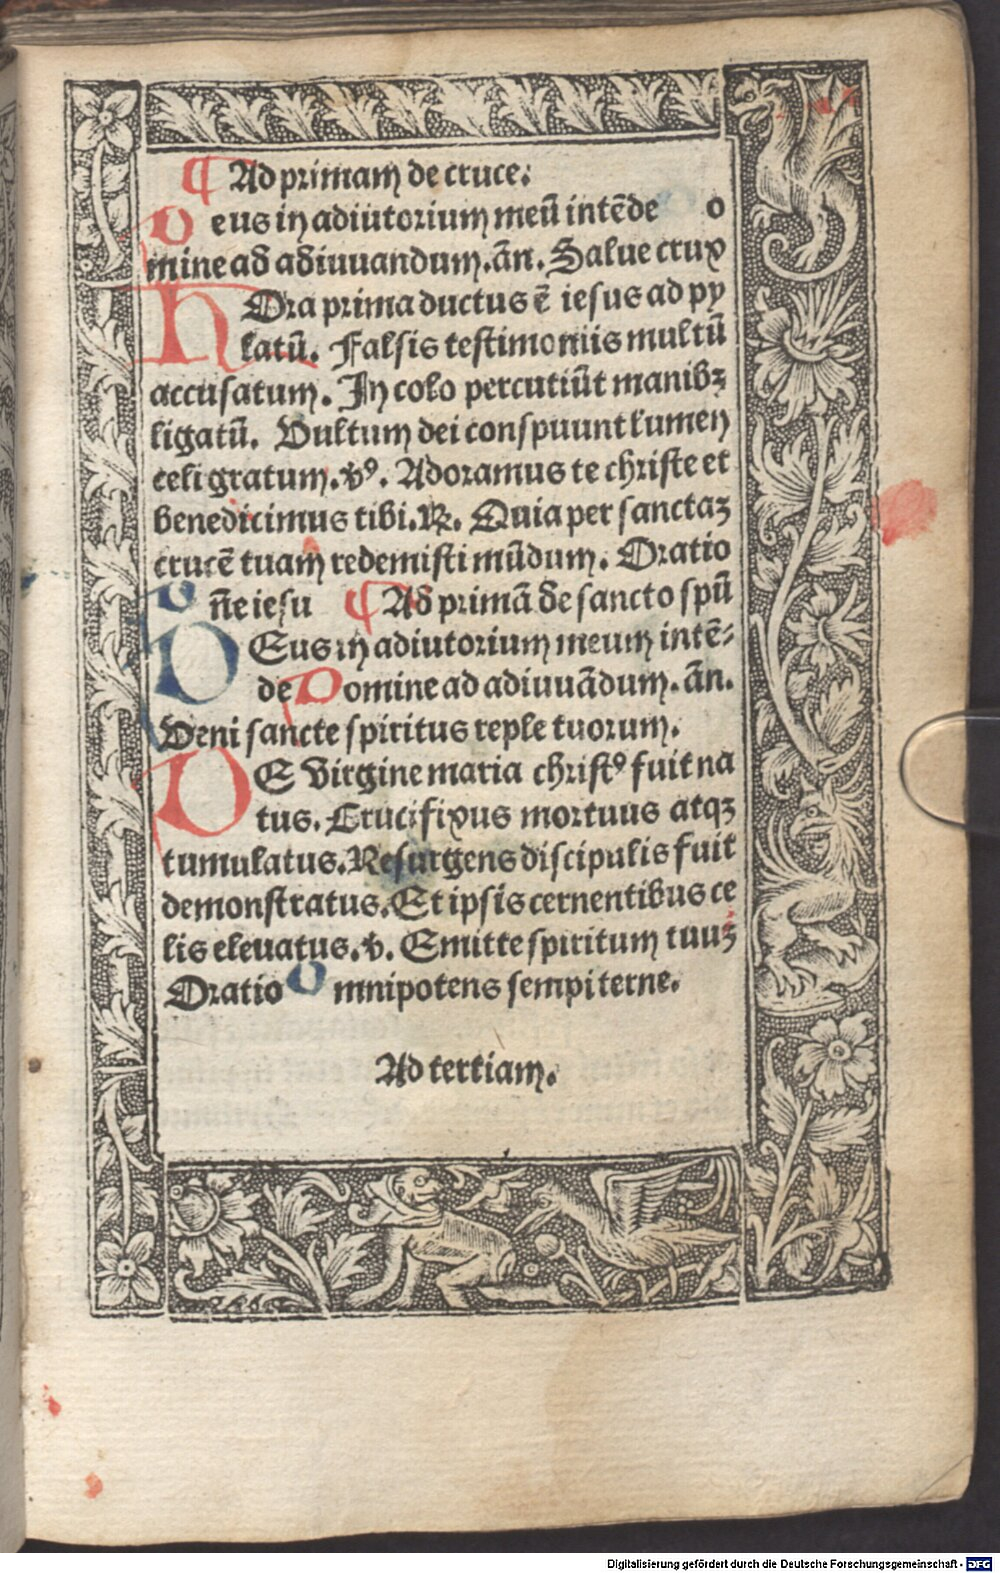 ¶ Ad primam de cruce.
Deus in adiutorium meū intēde o
mine ad adiuuandum. ān. Salue crux
HOra prima ductus ē iesus ad py
latū. Falsis testimoniis multū
accusatum. In colo percutiūt manibꝫ
ligatū. Vultum dei conspuunt lumen
celi gratum. ꝟꝰ. Adoramus te christe et
benedicimus tibi. ℞. Quia per sanctaꝫ
crucē tuam redemisti mūdum. Oratio
Dñe iesu ¶ Ad primā de sancto spū
DEus in adiutorium meum intē⸗
de Domine ad adiuuādum. ān.
Veni sancte spiritus reple tuorum.
DE Virgine maria christꝰ fuit na
tus. Crucifixus mortuus atqꝫ
tumulatus. Resurgens discipulis fuit
demonstratus. Et ipsis cernentibus ce
lis eleuatus. ꝟ. Emitte spiritum tuuꝫ
Oratio Omnipotens sempiterne.
Ad tertiam.
Digitalisierung gefördert durch die Deutsche Forschungsgemeinschaft - DFG